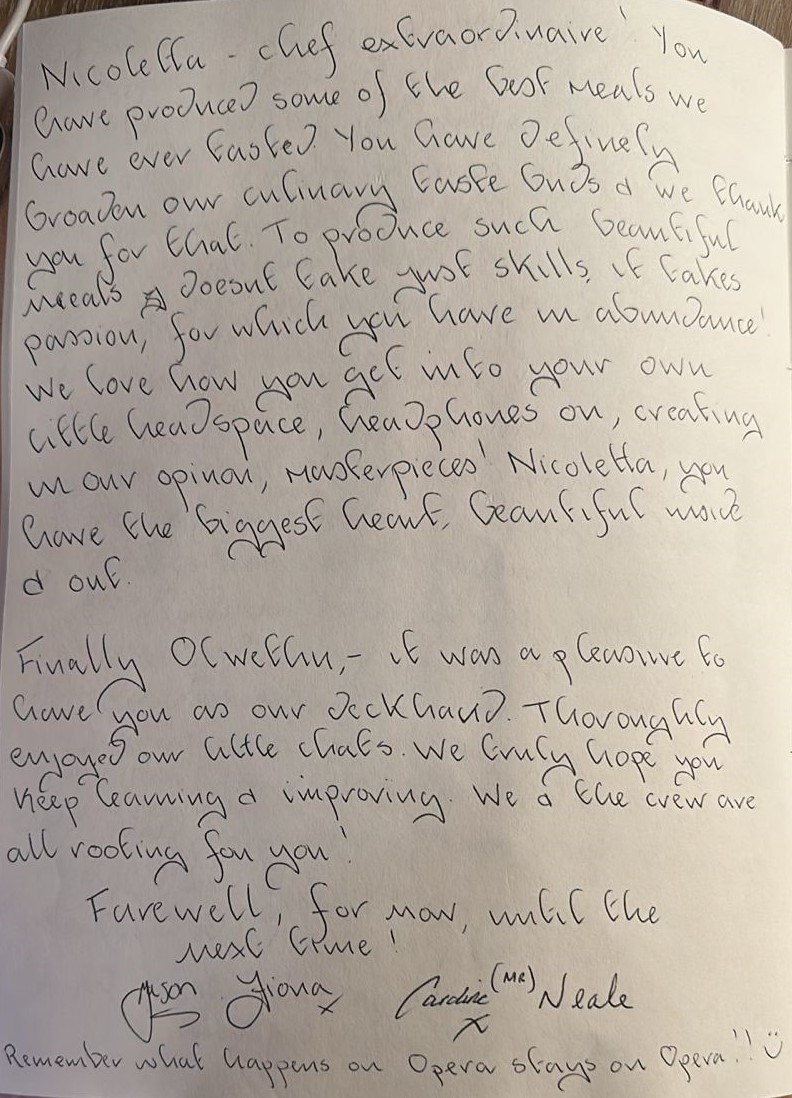 Nicoletta - chef extraordinaire! You
have produced some of the best meals we
have ever tasted. You have definely
broaden our culinary taste buds & we thank
you for that. To produce such beautiful
meals doesnt take just skills, it takes
passion, for which you have in abundance!
We love how you get into your own
little headspace, headphones on, creating
in our opinon, masterpieces! Nicoletta, you
have the biggest heart, beautiful inside
& out.
Finally Olwethu, - it was a pleasure to
have you as our deckhand. Thoroughly
enjoyed our little chats. We truly hope you
keep learning & improving. We & the crew are
all rooting for you!
Farewell, for now, until the
next time!
Jason Fiona x Caroline (MR) Neale
x
Remember what happens on Opera stays on Opera!! ☺